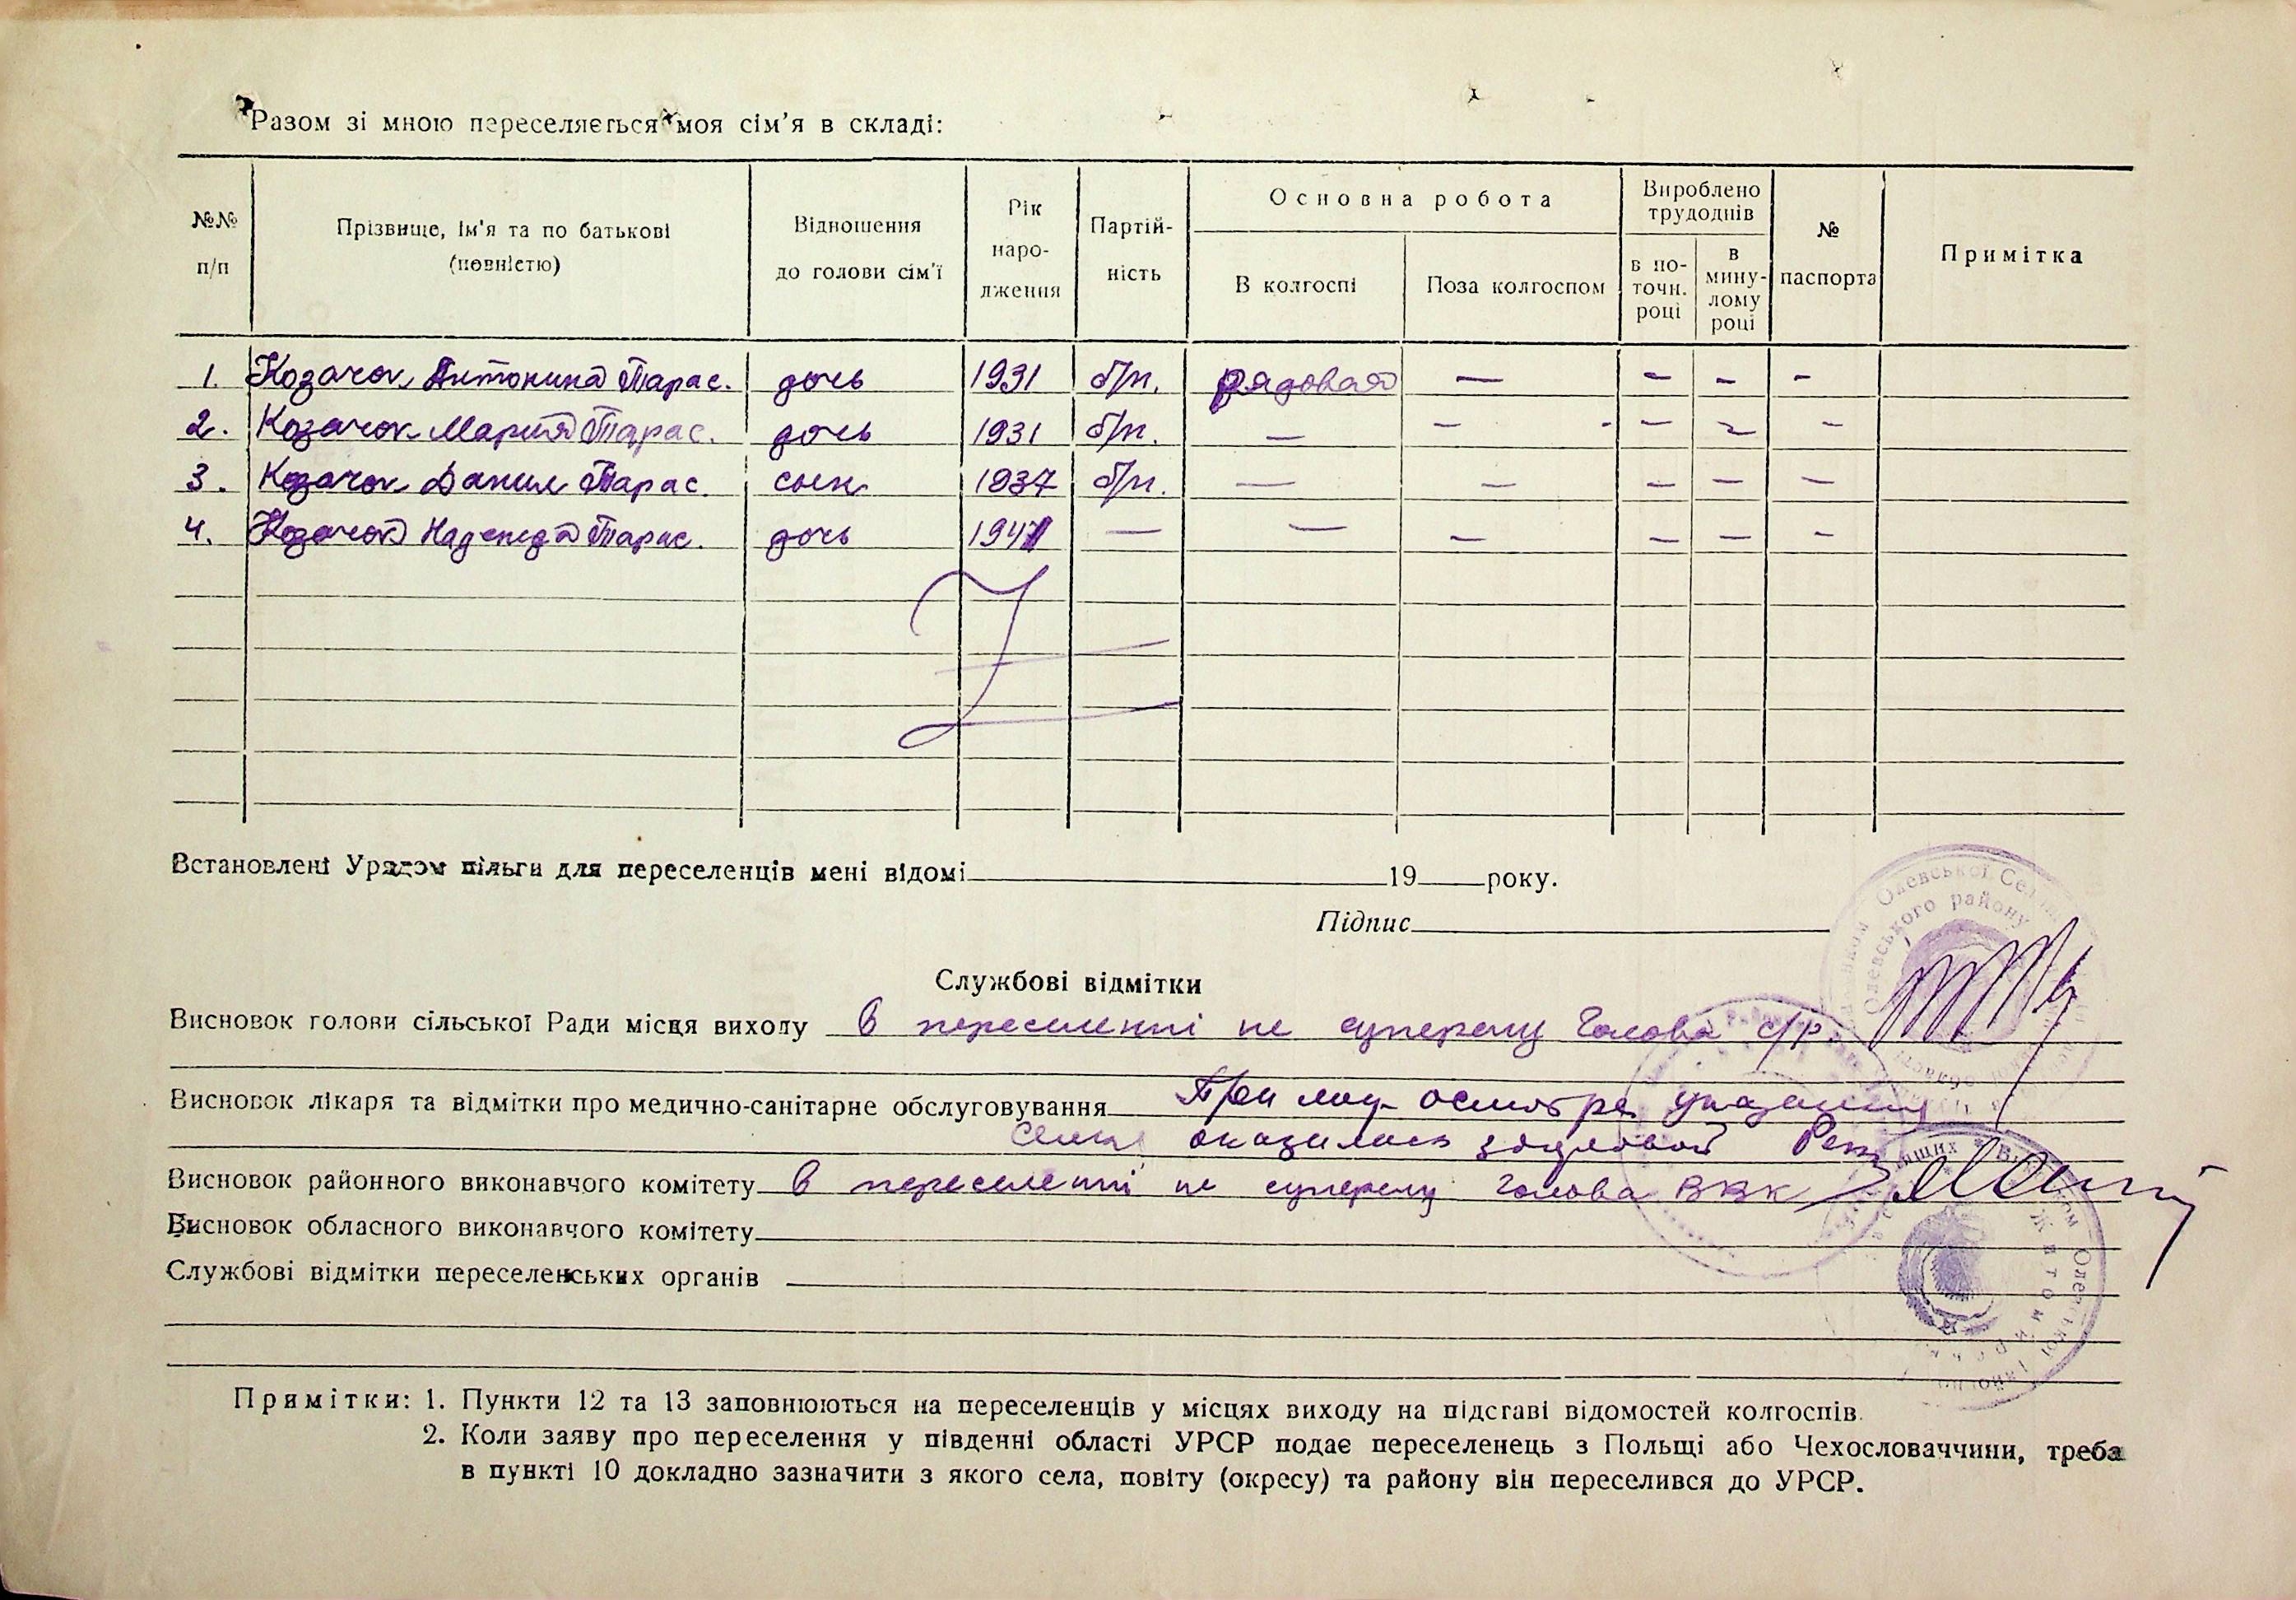 Разом зі мною переселяється моя сім'я в складі:
№№ п/п
Прізвище, ім'я та по батькові (повністю)
Відношення до голови сім'ї
Рік народження
Партійність
Основна робота
В колгоспі
Поза колгоспом
Вироблено трудоднів
в поточн. році
в минулому році
№ паспорта
Примітка
1. Козачок Антонина Тарас. дочь 1931 б/п. рядовая — — — —
2. Козачок Мария Тарас. дочь 1931 б/п. — — — — —
3. Козачок Данил Тарас. сын 1937 б/п. — — — — —
4. Козачок Надежда Тарас. дочь 1941 — — — — — —
Встановлені Урядом пільги для переселенців мені відомі 19 року.
Підпис
Службові відмітки
Висновок голови сільської Ради місця виходу в переселенні не суперечу Голова с/р.
Висновок лікаря та відмітки про медично-санітарне обслуговування При осмотре
оказалась здоровой
Висновок районного виконавчого комітету в переселенні не суперечу голова РВК
Висновок обласного виконавчого комітету
Службові відмітки переселенських органів
Примітки: 1. Пункти 12 та 13 заповнюються на переселенців у місцях виходу на підставі відомостей колгоспів.
2. Коли заяву про переселення у південні області УРСР подає переселенець з Польщі або Чехословаччини, треба
в пункті 10 докладно зазначити з якого села, повіту (окресу) та району він переселився до УРСР.